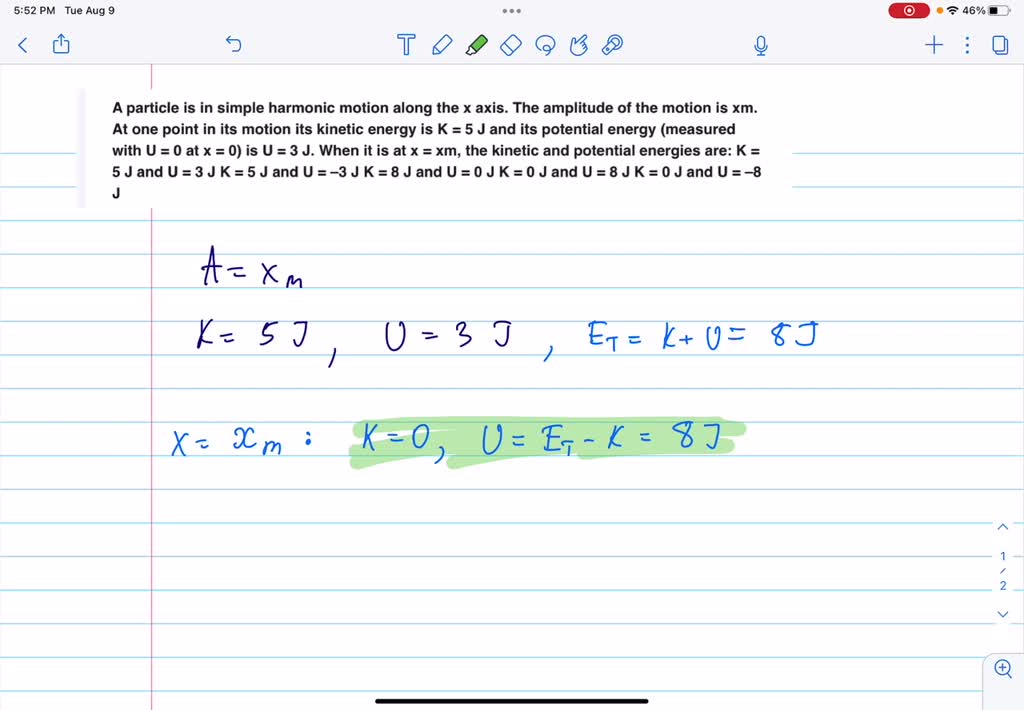 5:52 PM Tue Aug 9
46%
T
A particle is in simple harmonic motion along the x axis. The amplitude of the motion is xm.
At one point in its motion its kinetic energy is K = 5 J and its potential energy (measured
with U = 0 at x = 0) is U = 3 J. When it is at x = xm, the kinetic and potential energies are: K =
5 J and U = 3 J K = 5 J and U = –3 J K = 8 J and U = 0 J K = 0 J and U = 8 J K = 0 J and U = –8
J
A = xm
K = 5 J, U = 3 J, ET = K + U = 8 J
x = xm : K = 0, U = ET - K = 8 J
1
/
2